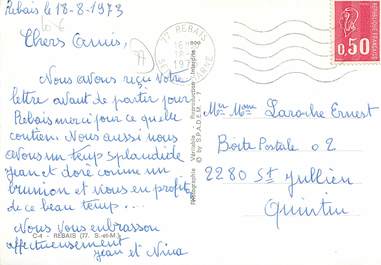 Rebais le 18-8-1973
10 €
77
Chers Amis,
Nous avons reçu votre
lettre avant de partir pour
Rebais merci pour ce quelle
contien. Nous aussi nous
avons un temp splendide
jean et doré comme un
brunion et nous en profit
de ce beau temp ....
Nous vous embrasson
affectueusement
jean et Nina
C-4 - REBAIS (77. S.-et-M.)
Photographie Véritable - Reproduction Interdite
© by S.P.A.D.E.M. - 7
77 REBAIS
18-8
1973
SEINE ET MARNE
REPUBLIQUE FRANÇAISE
0,50
POSTES
Mr Mme Laroche Ernest
Boite Postale 02
2280 St Jullien
Quintin